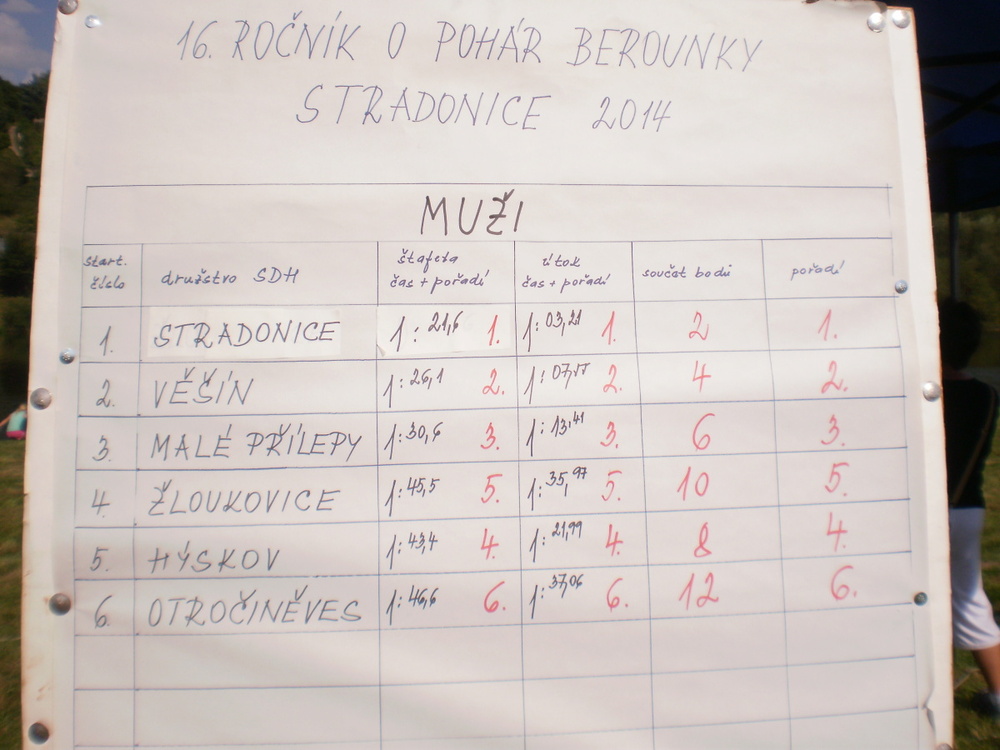 16. ROČNÍK O POHÁR BEROUNKY
STRADONICE 2014
MUŽI
start. číslo družstvo SDH štafeta čas + pořadí útok čas + pořadí součet bodů pořadí
1. STRADONICE 1:21,6 1. 1:03,21 1. 2 1.
2. VĚŠÍN 26,1 2. 1: 2. 4 2.
3. MALÉ PŘÍLEPY 1:30,6 3. 1:13,41 3. 6 3.
4. ŽLOUKOVICE 1:45,5 5. 1:35,97 5. 10 5.
5. HÝSKOV 1:43,4 4. 1:21,99 4. 8 4.
6. OTROČINĚVES 1:46,6 6. 1:37,06 6. 12 6.